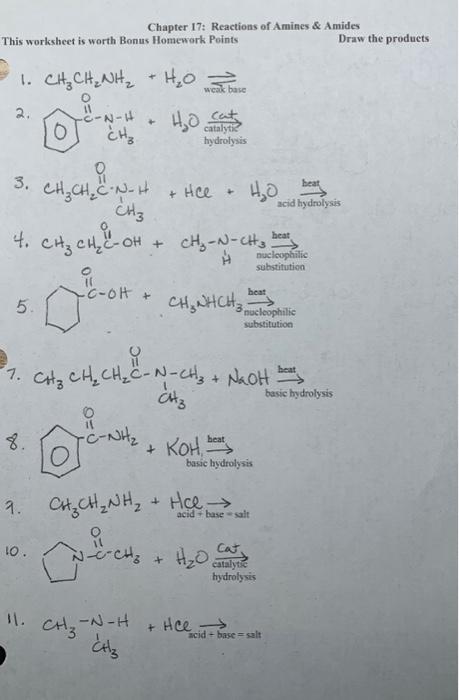 Chapter 17: Reactions of Amines & Amides
This worksheet is worth Bonus Homework Points Draw the products
1. CH₃CH₂NH₂ + H₂O ⇌
weak base
O
2. C-N-H + H₂O Cat
CH₃ catalytic
hydrolysis
O
3. CH₃CH₂C-N-H + HCl + H₂O heat
CH₃ acid hydrolysis
O
4. CH₃CH₂C-OH + CH₃-N-CH₃ heat
H nucleophilic
substitution
O
5. C-OH + CH₃NHCH₃ heat
nucleophilic
substitution
O
7. CH₃CH₂CH₂C-N-CH₃ + NaOH heat
CH₃ basic hydrolysis
O
8. C-NH₂ + KOH, heat
basic hydrolysis
9. CH₃CH₂NH₂ + HCl →
acid + base = salt
O
10. N-C-CH₃ + H₂O Cat
catalytic
hydrolysis
11. CH₃-N-H + HCl →
CH₃ acid + base = salt